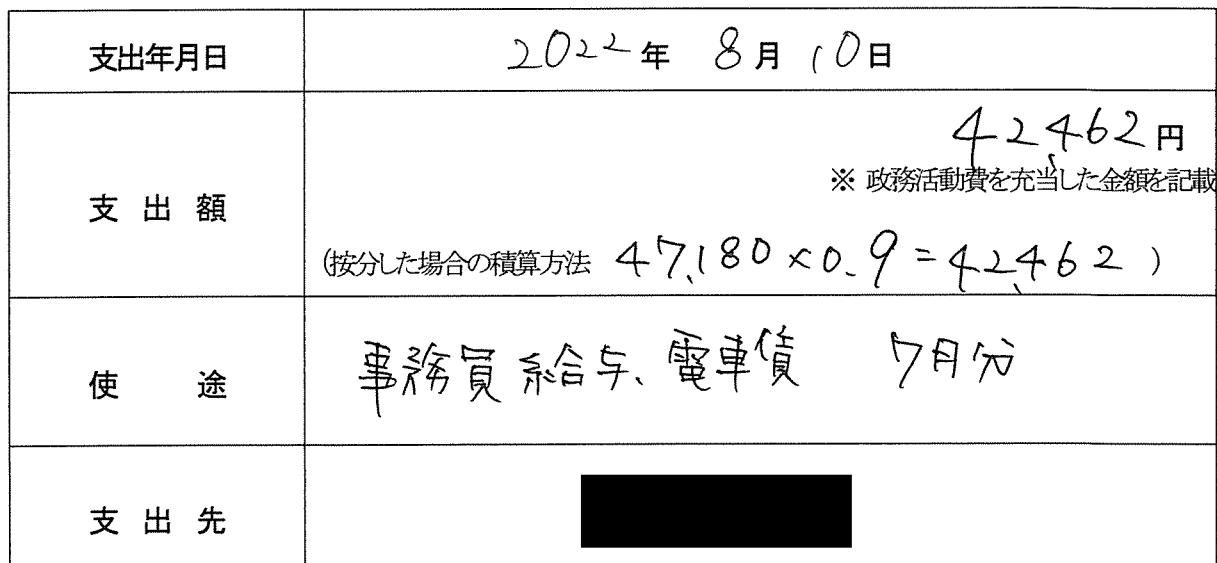 支出年月日 2022年 8月 10日
42,462円
※ 政務活動費を充当した金額を記載
支出額
(按分した場合の積算方法 47,180×0.9=42,462)
使途 事務員給与、電車賃 7月分
支出先